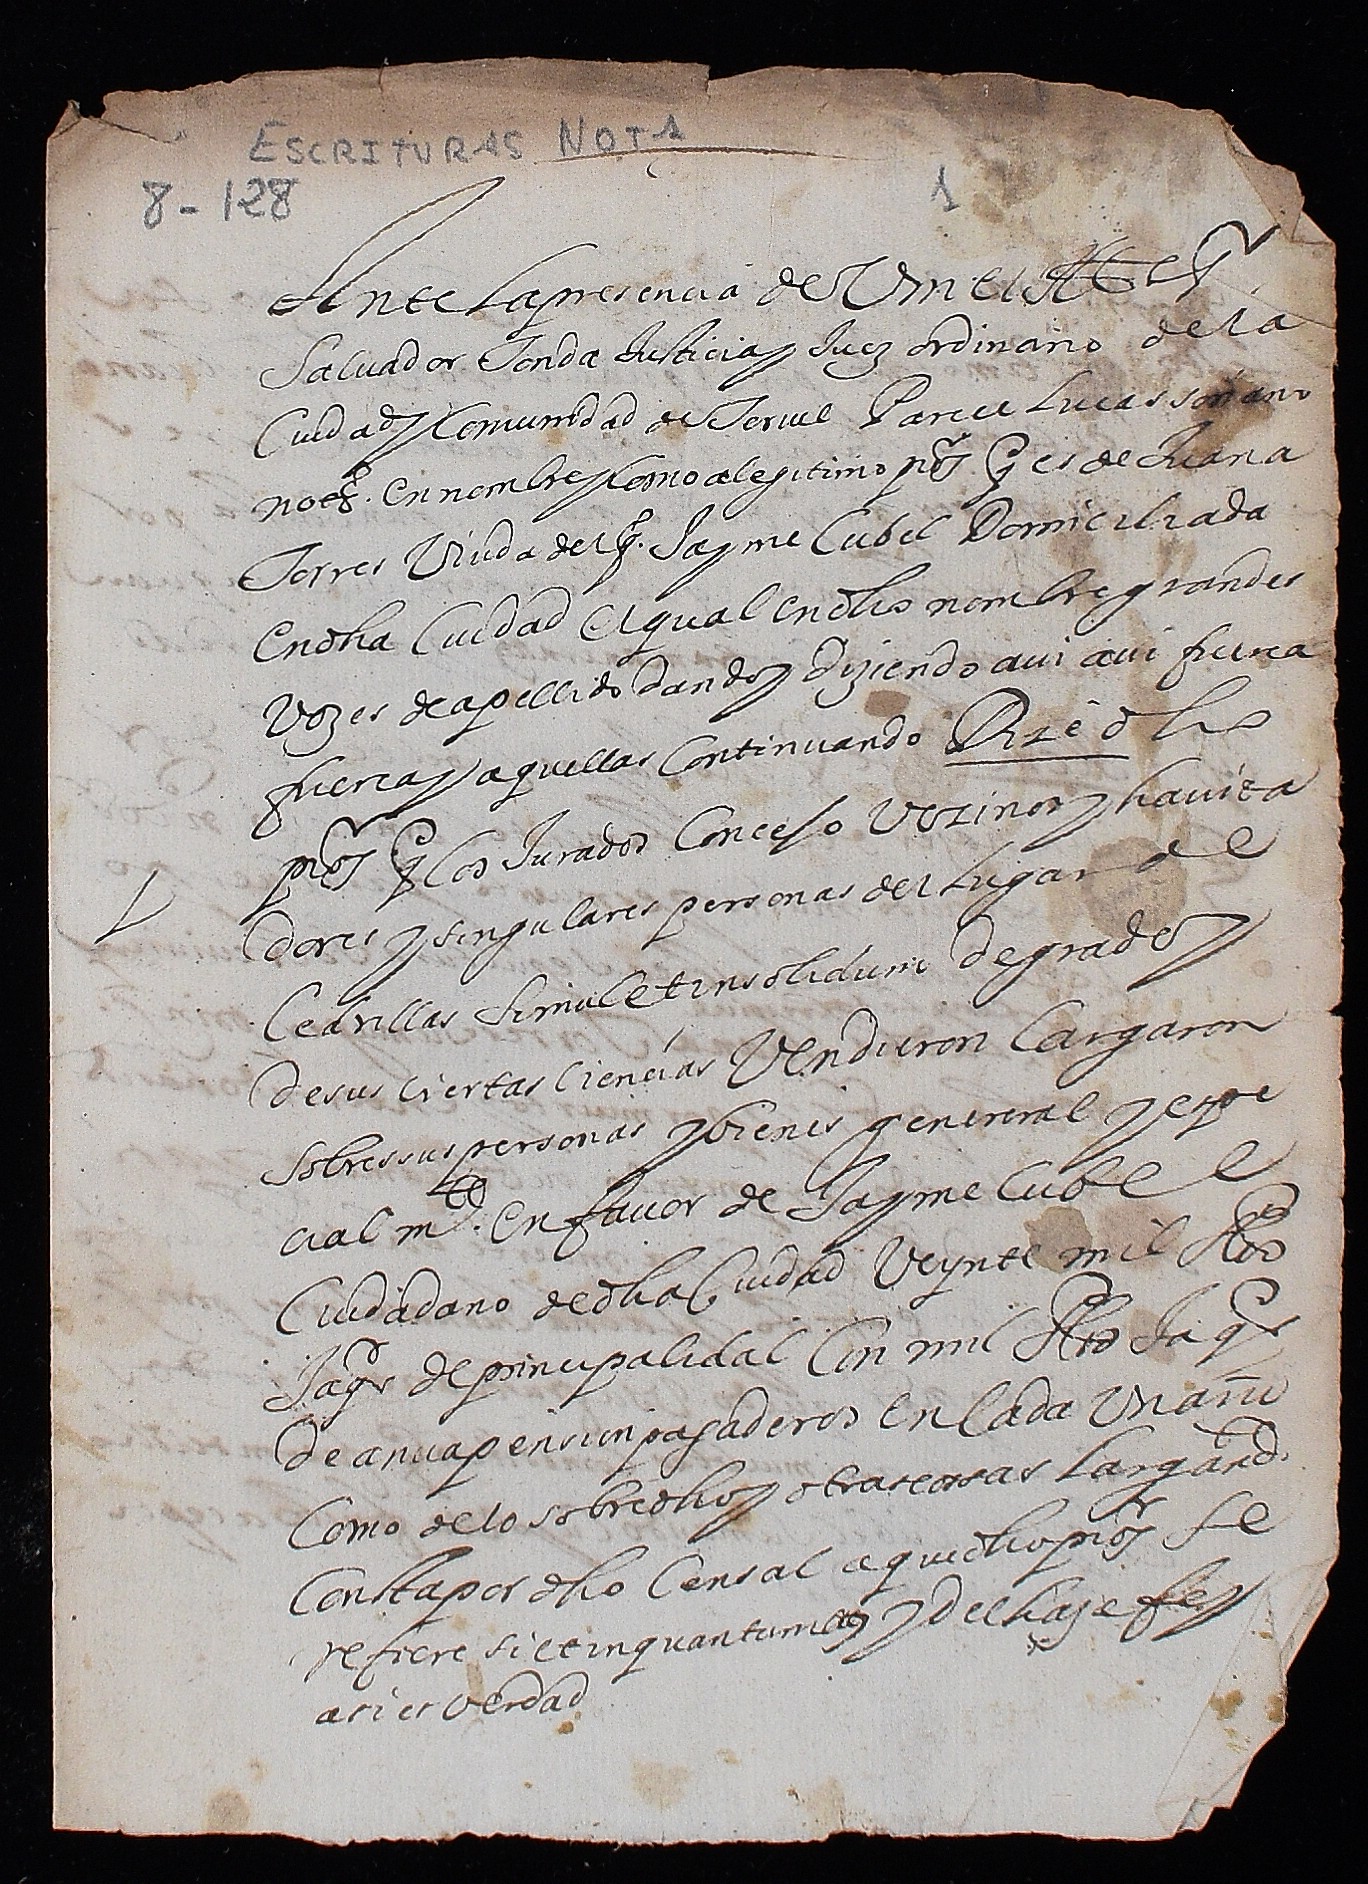 ESCRITURAS NOTA
8-128
1
Ante la presencia de Vm el
Salvador Jonda Justicia y Juez ordinario de la
Ciudad y Comunidad de Teruel Parece Lucas soriano
not. en nombre y como a legitimo pror q es de Juana
Torres Viuda del q. Jayme Cubel Domiciliada
en dha Ciudad el qual en dho nombre grandes
vozes de apellido dando y diziendo avi avi fuerza
fuerza y aquellas continuando Dize dho
pror q los Jurados Concejo vezinos y havita
dores y singulares personas del Lugar de
Cedrillas simul et insolidum de grado y
de sus ciertas ciencias Vendieron Cargaron
sobre sus personas y bienes general y espe
cial mte. en favor de Jayme Cubel
Ciudadano de dha Ciudad Veynte mil sldos
Jaqs de principalidad Con mil sldos Jaqs
de anua pension pagaderos en Cada Un añ
Como de lo sobredho y otras cossas largamd.
Consta por dho Censal a que dho pror se
refiere si et inquantum y del haze fe y
asi es verdad